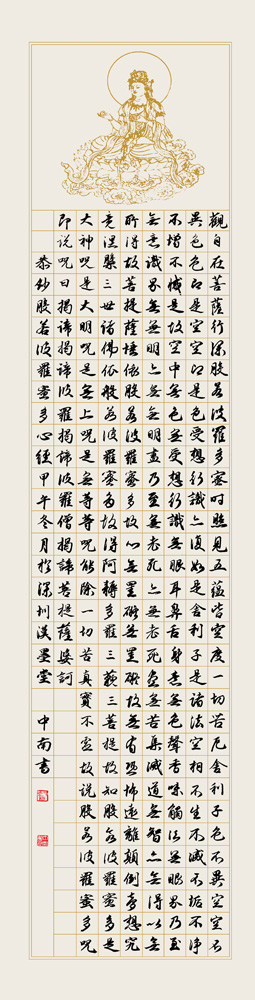 觀自在菩薩行深般若波羅多蜜時照見五蘊皆空度一切苦厄舍利子色不異空空不
異色色即是空空即是色受想行識亦復如是舍利子是諸法空相不生不滅不垢不淨
不增不減是故空中無色無受想行識無眼耳鼻舌身意無色聲香味觸法無眼界乃至
無意識界無無明亦無無明盡乃至無老死亦無老死盡無苦集滅道無智亦無得以無
所得故菩提薩埵依般若波羅蜜多故心無罣礙無罣礙故無有恐怖遠離顛倒夢想究
竟涅槃三世諸佛依般若波羅蜜多故得阿耨多羅三藐三菩提故知般若波羅蜜多是
大神咒是大明咒是無上咒是無等等咒能除一切苦真實不虛故說般若波羅蜜多咒
即說咒曰揭諦揭諦波羅揭諦波羅僧揭諦菩提薩婆訶
恭鈔般若波羅蜜多心經甲午冬月於深圳漢墨堂 中南書